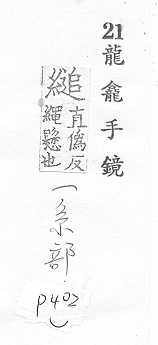 21龍龕手鏡
縋直僞反
繩懸也
一糸部
p402